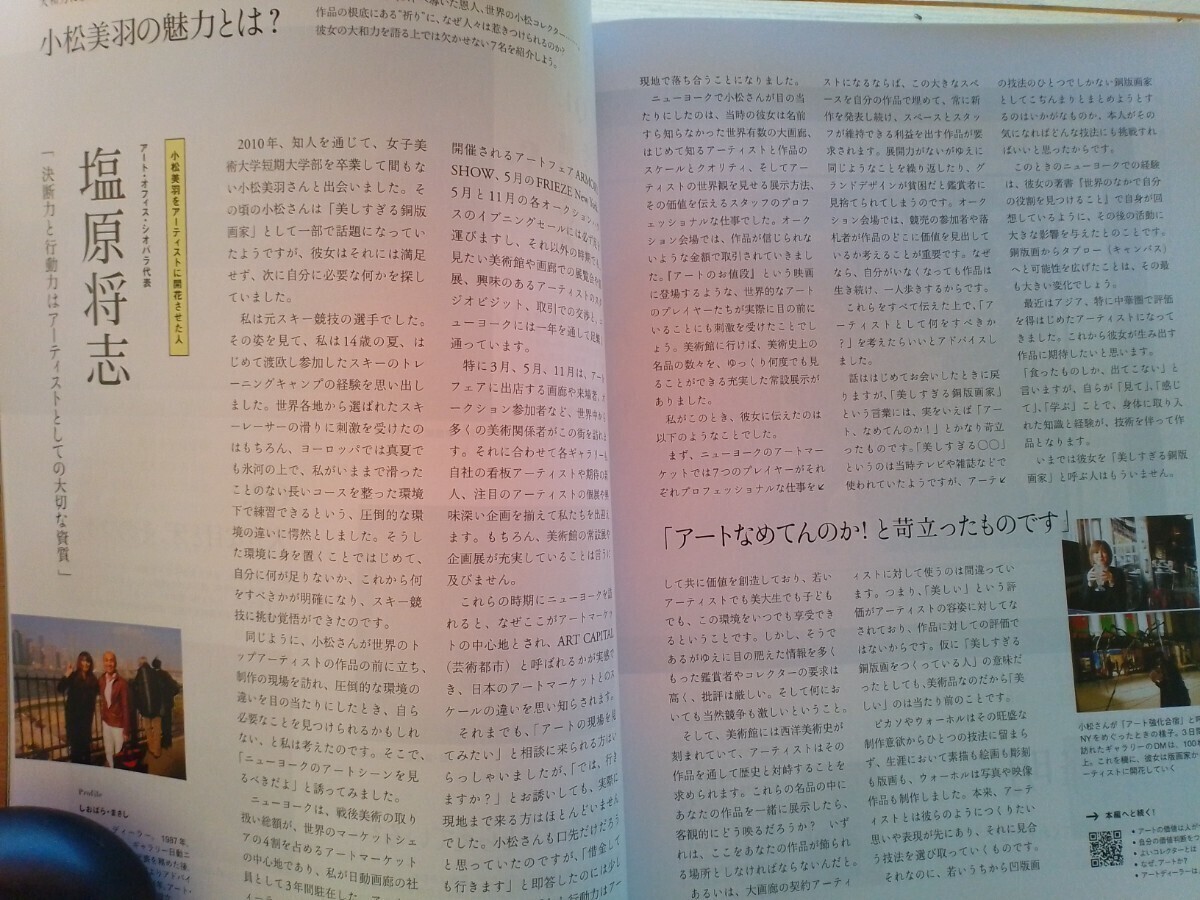 小松美羽の魅力とは？
作品の根底にある“祈り”に、なぜ人々は惹きつけられるのか？
彼女の大和力を語る上では欠かせない7名を紹介しよう。
小松美羽をアーティストに開花させた人
アート・オフィス・シオバラ代表
塩原将志
「決断力と行動力はアーティストとしての大切な資質」
2010年、知人を通じて、女子美
術大学短期大学部を卒業して間もな
い小松美羽さんと出会いました。そ
の頃の小松さんは「美しすぎる銅版
画家」として一部で話題になってい
たようですが、彼女はそれには満足
せず、次に自分に必要な何かを探し
ていました。
私は元スキー競技の選手でした。
その姿を見て、私は14歳の夏、は
じめて渡欧し参加したスキーのトレ
ーニングキャンプの経験を思い出し
ました。世界各地から選ばれたスキ
ーレーサーの滑りに刺激を受けたの
はもちろん、ヨーロッパでは真夏で
も氷河の上で、私がいままで滑った
ことのない長いコースを整った環境
下で練習できるという、圧倒的な環
境の違いに愕然としました。そうし
た環境に身を置くことではじめて、
自分に何が足りないか、これから何
をすべきかが明確になり、スキー競
技に挑む覚悟ができたのです。
同じように、小松さんが世界のト
ップアーティストの作品の前に立ち、
制作の現場を訪れ、圧倒的な環境の
違いを目の当たりにしたとき、自ら
必要なことを見つけられるかもしれ
ない、と私は考えたのです。そこで、
「ニューヨークのアートシーンを見
るべきだよ」と誘ってみました。
ニューヨークは、戦後美術の取り
扱い総額が、世界のマーケットシェ
アの4割を占めるアートマーケット
の中心地であり、私が日動画廊の社
員として3年間駐在した、
開催されるアートフェアARMORY
SHOW、5月のFRIEZE New York
5月と11月の各オークション
スのイブニングセールには必ず
運びますし、それ以外の時期でも
見たい美術館や画廊での展覧会や
展、興味のあるアーティストのスタ
ジオビジット、取引での交渉と、ニ
ューヨークには一年を通して
通っています。
特に3月、5月、11月は、アート
フェアに出店する画廊や来場者、オ
ークション参加者など、世界中から
多くの美術関係者がこの街を訪れま
す。それに合わせて各ギャラリーも
自社の看板アーティストや期待の新
人、注目のアーティストの個展や興
味深い企画を揃えて私たちを出迎え
ます。もちろん、美術館の常設展や
企画展が充実していることは言うに
及びません。
これらの時期にニューヨークを訪
れると、なぜここがアートマーケッ
トの中心地とされ、ART CAPITAL
（芸術都市）と呼ばれるかが実感で
き、日本のアートマーケットとのス
ケールの違いを思い知らされます。
それまでも、「アートの現場を見
てみたい」と相談に来られる方はい
らっしゃいましたが、「では、行き
ますか？」とお誘いしても、実際に
現地まで来る方はほとんどいません
でした。小松さんも口先だけだろう
と思っていたのですが、「借金して
も行きます」と即答したのには少し
現地で落ち合うことになりました。
ニューヨークで小松さんが目の当
たりにしたのは、当時の彼女は名前
すら知らなかった世界有数の大画廊、
はじめて知るアーティストと作品の
スケールとクオリティ、そしてアー
ティストの世界観を見せる展示方法、
その価値を伝えるスタッフのプロフ
ェッショナルな仕事でした。オーク
ション会場では、作品が信じられな
いような金額で取引されていきまし
た。『アートのお値段』という映画
に登場するような、世界的なアート
のプレイヤーたちが実際に目の前に
いることにも刺激を受けたことでし
ょう。美術館に行けば、美術史上の
名品の数々を、ゆっくり何度でも見
ることができる充実した常設展示が
ありました。
私がこのとき、彼女に伝えたのは
以下のようなことでした。
まず、ニューヨークのアートマー
ケットでは7つのプレイヤーがそれ
ぞれプロフェッショナルな仕事を↙
ストになるならば、この大きなスペ
ースを自分の作品で埋めて、常に新
作を発表し続け、スペースとスタッ
フが維持できる利益を出す作品が要
求されます。展開力がないがゆえに
同じようなことを繰り返したり、グ
ランドデザインが貧困だと鑑賞者に
見捨てられてしまうのです。オーク
ション会場では、競売の参加者や落
札者が作品のどこに価値を見出して
いるか考えることが重要です。なぜ
なら、自分がいなくなっても作品は
生き続け、一人歩きするからです。
これらをすべて伝えた上で、「ア
ーティストとして何をすべきか
？」を考えたらいいとアドバイスし
ました。
話ははじめてお会いしたときに戻
りますが、「美しすぎる銅版画家」
という言葉には、実をいえば「アー
ト、なめてんのか！」とかなり苛立
ったものです。「美しすぎる○○」
というのは当時テレビや雑誌などで
使われていたようですが、アーテ↙
の技法のひとつでしかない銅版画家
としてこぢんまりとまとめようとす
るのはいかがなものか、本人がその
気になればどんな技法にも挑戦すれ
ばいいと思ったからです。
このときのニューヨークでの経験
は、彼女の著書『世界のなかで自分
の役割を見つけること』で自身が回
想しているように、その後の活動に
大きな影響を与えたとのことです。
銅版画からタブロー（キャンバス）
へと可能性を広げたことは、その最
も大きい変化でしょう。
最近はアジア、特に中華圏で評価
を得はじめたアーティストになって
きました。これから彼女が生み出す
作品に期待したいと思います。
「食ったものしか、出てこない」と
言いますが、自らが「見て」、「感じ
て」、「学ぶ」ことで、身体に取り入
れた知識と経験が、技術を伴って作
品となります。
いまでは彼女を「美しすぎる銅版
画家」と呼ぶ人はもういません。
「アートなめてんのか！と苛立ったものです」
して共に価値を創造しており、若い
アーティストでも美大生でも子ども
でも、この環境をいつでも享受でき
るということです。しかし、そうで
あるがゆえに目の肥えた情報を多く
もった鑑賞者やコレクターの要求は
高く、批評は厳しい。そして何にお
いても当然競争も激しいということ。
そして、美術館には西洋美術史が
刻まれていて、アーティストはその
作品を通して歴史と対峙することを
求められます。これらの名品の中に
あなたの作品を一緒に展示したら、
客観的にどう映るだろうか？　いず
れは、ここをあなたの作品が飾られ
る場所としなければならないんだと。
あるいは、大画廊の契約アーティ
ィストに対して使うのは間違ってい
ます。つまり、「美しい」という評
価がアーティストの容姿に対してな
されており、作品に対しての評価で
はないからです。仮に「美しすぎる
銅版画をつくっている人」の意味だ
ったとしても、美術品なのだから「美
しい」のは当たり前のことです。
ピカソやウォーホルはその旺盛な
制作意欲からひとつの技法に留まら
ず、生涯において素描も絵画も彫刻
も版画も、ウォーホルは写真や映像
作品も制作しました。本来、アーテ
ィストとは彼らのようにつくりたい
思いや表現が先にあり、それに見合
う技法を選び取っていくものです。
それなのに、若いうちから凹版画
小松さんが「アート強化合宿」と
NYをめぐったときの様子。3日間
訪れたギャラリーのDMは、100
上。これを機に、彼女は版画家か
ーティストに開花していく
→ 本編へと続く！
• アートの価値は人が
• 自分の価値判断をつ
• よいコレクターとは
• なぜ、アートか？
• アートディーラーは、
Profile
しおばら・まさし
ディーラー。1987年、
ギャラリー日動ニ